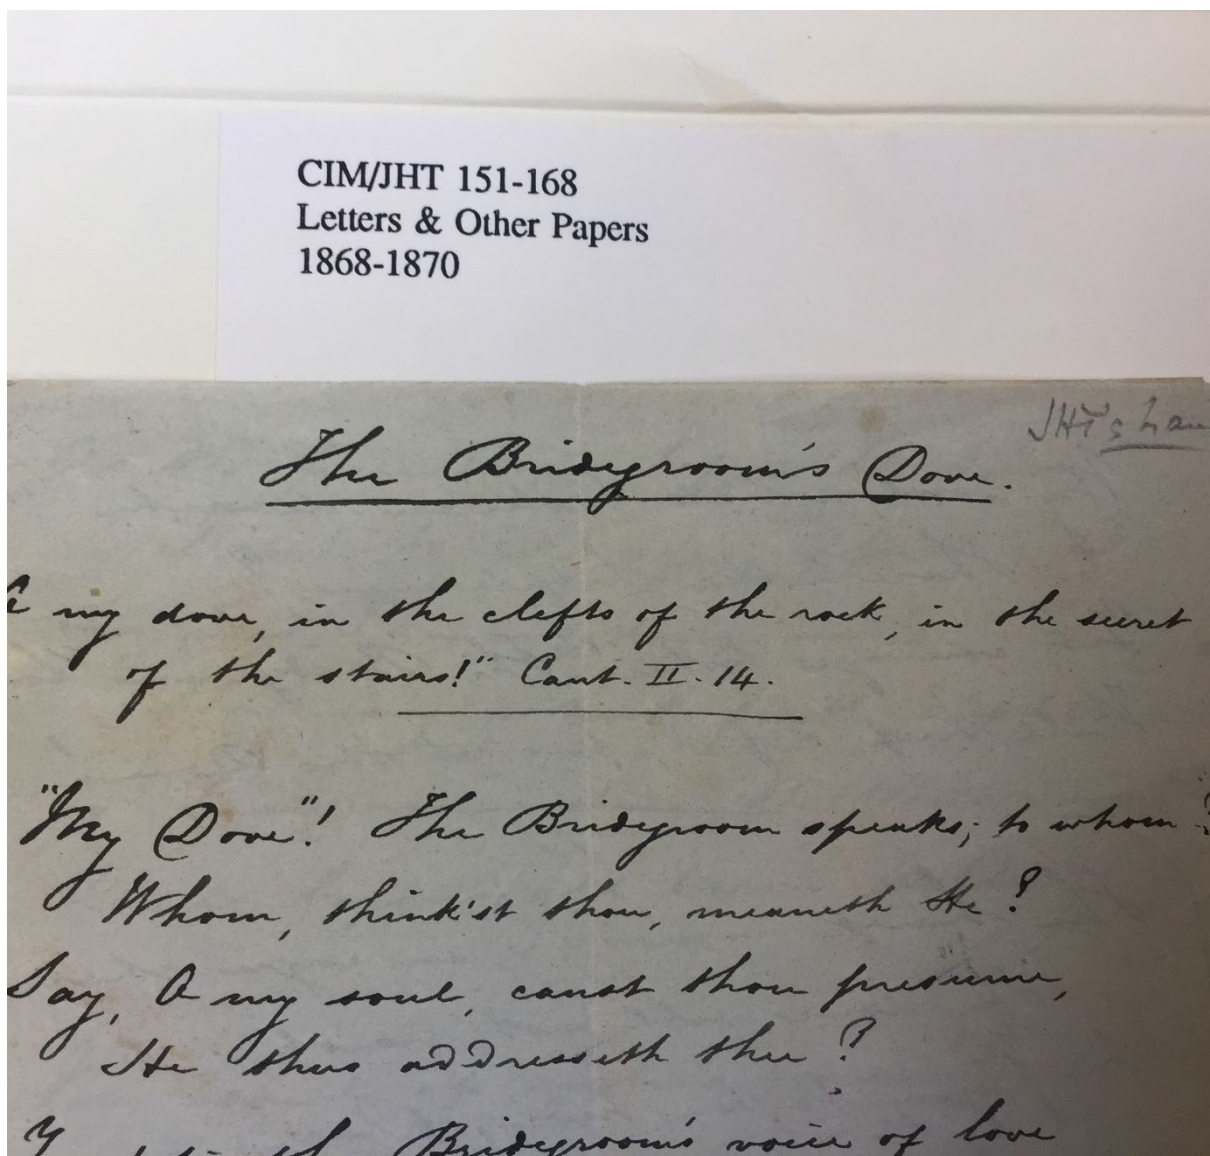 CIM/JHT 151-168
Letters & Other Papers
1868-1870
JHT's
The Bridegroom's Dove.
my dove, in the clefts of the rock, in the secret
of the stairs!" Cant. II. 14.
"My Dove"! The Bridegroom speaks; to whom?
Whom, think'st thou, meaneth He?
Say, O my soul, canst thou presume,
He thus addresseth thee?
Bridegroom's voice of love